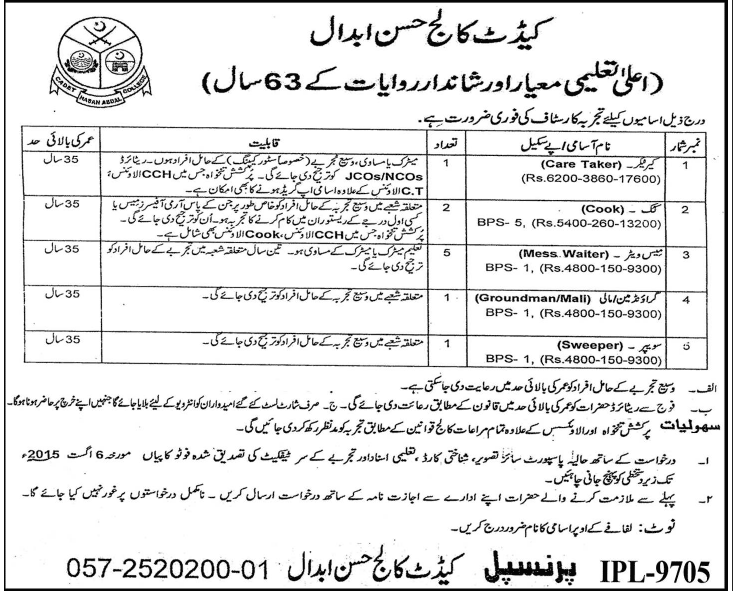 کیڈٹ کالج حسن ابدال
(اعلیٰ تعلیمی معیار اور شاندار روایات کے 63 سال)
CADET COLLEGE
HASAN ABDAL
درج ذیل اسامیوں کیلئے تجربہ کار سٹاف کی فوری ضرورت ہے۔
نمبر شمار نام آسامی/پے سکیل تعداد قابلیت عمر کی بالائی حد
1 کیئر ٹیکر۔ (Care Taker) 1 میٹرک یا مساوی، وسیع تجربے (خصوصاً سٹور کیپنگ) کے حامل افراد ہوں۔ ریٹائرڈ 35 سال
(Rs.6200-3860-17600) JCOs/NCOs کو ترجیح دی جائے گی۔ پرکشش تنخواہ جس میں CCH الاؤنس،
C.T الاؤنس کے علاوہ اسامی اپ گریڈ ہونے کا بھی امکان ہے۔
2 کک۔ (Cook) 2 متعلقہ شعبے میں وسیع تجربہ کے حامل افراد کو خاص طور پر جن کے پاس آرمی آفیسرز میس یا 35 سال
BPS- 5, (Rs.5400-260-13200) کسی اول درجے کے ریستوران میں کام کرنے کا تجربہ ہو۔ اُن کو ترجیح دی جائے گی۔
پُرکشش تنخواہ جس میں CCH الاؤنس، Cook الاؤنس بھی شامل ہے۔
3 میس ویٹر۔ (Mess. Waiter) 5 تعلیم میٹرک یا میٹرک کے مساوی ہو۔ تین سال متعلقہ شعبہ میں تجربے کے حامل افراد کو 35 سال
BPS- 1, (Rs.4800-150-9300) ترجیح دی جائے گی۔
4 گراؤنڈ مین/مالی (Groundman/Mali) 1 متعلقہ شعبے میں وسیع تجربہ کے حامل افراد کو ترجیح دی جائے گی۔ 35 سال
BPS- 1, (Rs.4800-150-9300)
5 سویپر۔ (Sweeper) 1 متعلقہ شعبے میں وسیع تجربہ کے حامل افراد کو ترجیح دی جائے گی۔ 35 سال
BPS- 1, (Rs.4800-150-9300)
الف۔ وسیع تجربے کے حامل افراد کو عمر کی بالائی حد میں رعایت دی جا سکتی ہے۔
ب۔ فوج سے ریٹائرڈ حضرات کو عمر کی بالائی حد میں قانون کے مطابق رعائت دی جائے گی۔ ج۔ صرف شارٹ لسٹ کئے گئے امیدواران کو انٹرویو کے لئے بلایا جائے گا جنہیں اپنے خرچ پر حاضر ہونا ہوگا۔
سهولیات پرکشش تنخواہ اور الاؤنسس کے علاوہ تمام مراعات کالج قوانین کے مطابق تجربہ کو مدنظر رکھ کر دی جائیں گی۔
۱۔ درخواست کے ساتھ حالیہ پاسپورٹ سائز تصویر، شناختی کارڈ، تعلیمی اسناد اور تجربے کے سرٹیفکیٹ کی تصدیق شدہ فوٹو کاپیاں مورخہ 6 اگست 2015ء
تک زیر دستخطی کو پہنچ جانی چاہئیں۔
۲۔ پہلے سے ملازمت کرنے والے حضرات اپنے ادارے سے اجازت نامہ کے ساتھ درخواست ارسال کریں۔ نامکمل درخواستوں پر غور نہیں کیا جائے گا۔
نوٹ: لفافے کے اوپر اسامی کا نام ضرور درج کریں۔
IPL-9705 پرنسپل کیڈٹ کالج حسن ابدال 057-2520200-01